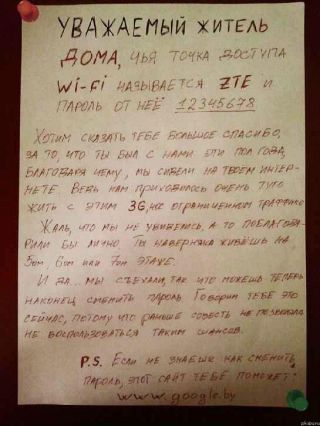 УВАЖАЕМЫЙ ЖИТЕЛЬ
ДОМА, ЧЬЯ ТОЧКА ДОСТУПА
Wi-Fi НАЗЫВАЕТСЯ ZTE И
ПАРОЛЬ ОТ НЕЁ 12345678
ХОТИМ СКАЗАТЬ ТЕБЕ БОЛЬШОЕ СПАСИБО,
ЗА ТО, ЧТО ТЫ БЫЛ С НАМИ ЭТИ ПОЛ ГОДА,
БЛАГОДАРЯ ЧЕМУ, МЫ СИДЕЛИ НА ТВОЕМ ИНТЕР-
НЕТЕ. ВЕДЬ НАМ ПРИХОДИЛОСЬ ОЧЕНЬ ТУГО
ЖИТЬ С ЭТИМ 3G, НА ОГРАНИЧЕННОМ ТРАФФИКЕ
ЖАЛЬ, ЧТО МЫ НЕ УВИДИМСЯ, А ТО ПОБЛАГОДА-
РИЛИ БЫ ЛИЧНО. ТЫ НАВЕРНЯКА ЖИВЁШЬ НА
5ом, 6ом ИЛИ 7ом ЭТАЖЕ.
И ДА... МЫ СЪЕХАЛИ, ТАК ЧТО МОЖЕШЬ ТЕПЕРЬ
НАКОНЕЦ СМЕНИТЬ ПАРОЛЬ. ГОВОРИМ ТЕБЕ ЭТО
СЕЙЧАС, ПОТОМУ ЧТО РАНЬШЕ СОВЕСТЬ НЕ ПОЗВОЛЯЛА
НЕ ВОСПОЛЬЗОВАТЬСЯ ТАКИМ ШАНСОМ.
P.S. ЕСЛИ НЕ ЗНАЕШЬ КАК СМЕНИТЬ
ПАРОЛЬ, ЭТОТ САЙТ ТЕБЕ ПОМОЖЕТ:
www.google.by